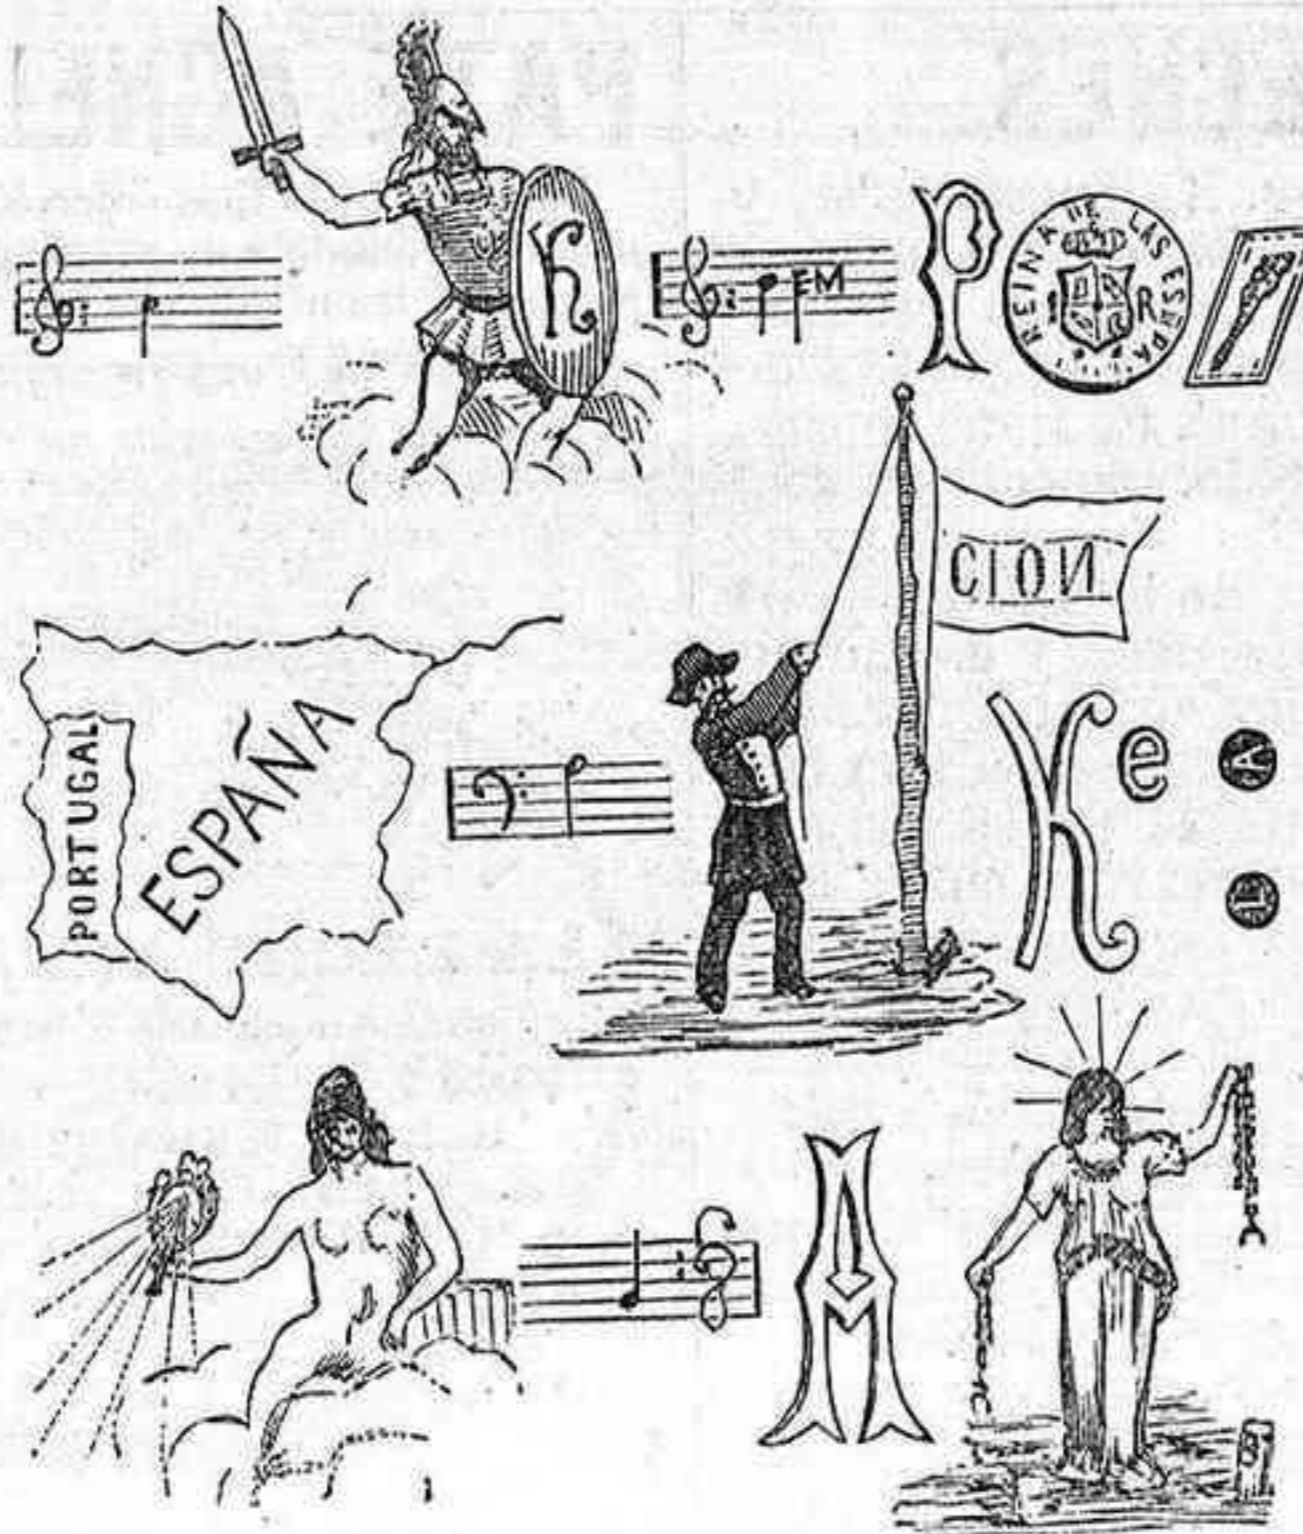 K
EM
P
REINA DE LAS ESPA
R
CION
PORTUGAL
ESPAÑA
K e
A
L
A
B